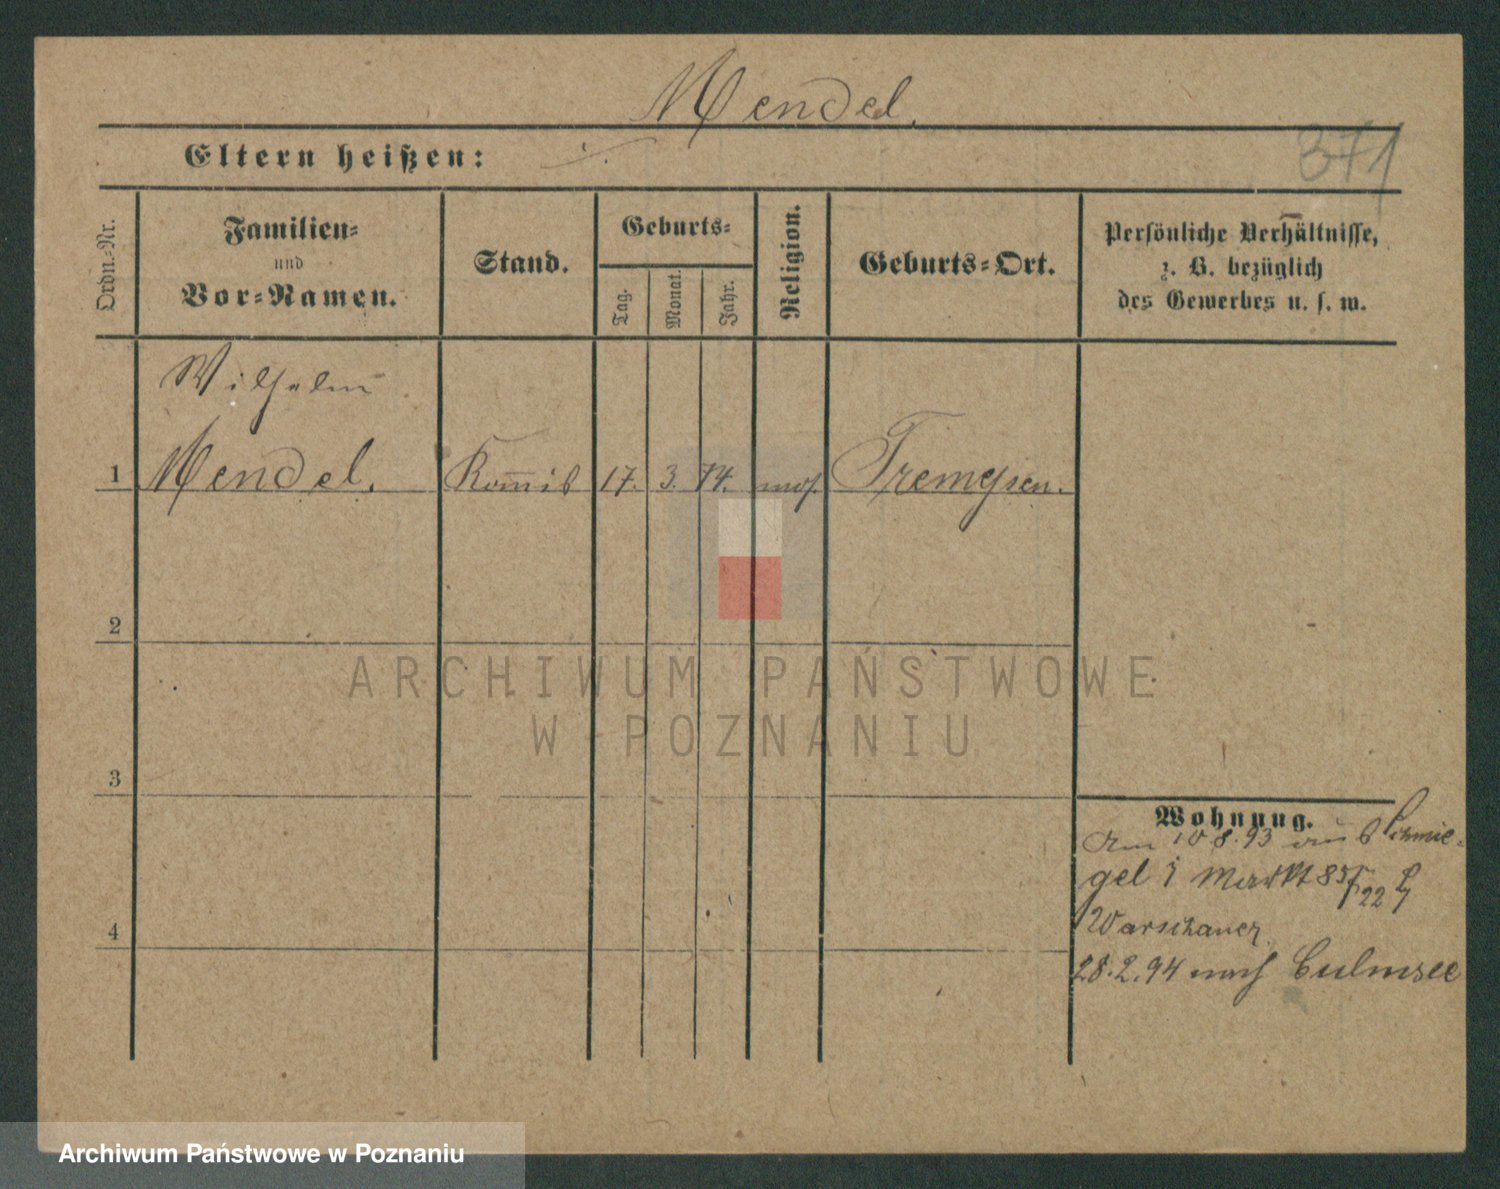 Mendel.
371
Eltern heißen: ./.
Ordn.-Nr.
Familien-
und
Vor-Namen.
Stand.
Geburts-
Tag.
Monat.
Jahr.
Religion.
Geburts-Ort.
Persönliche Verhältnisse,
z. B. bezüglich
des Gewerbes u. s. w.
Wilhelm
1 Mendel. Kom̅is 17. 3. 74. mos. Tremessen.
2
3
4
Wohnung.
Am 10 8. 93 aus Schmie-
gel Markt 85/22
Warschauer
28.2.94 nach Culmsee
ARCHIWUM PAŃSTWOWE
W POZNANIU
Archiwum Państwowe w Poznaniu